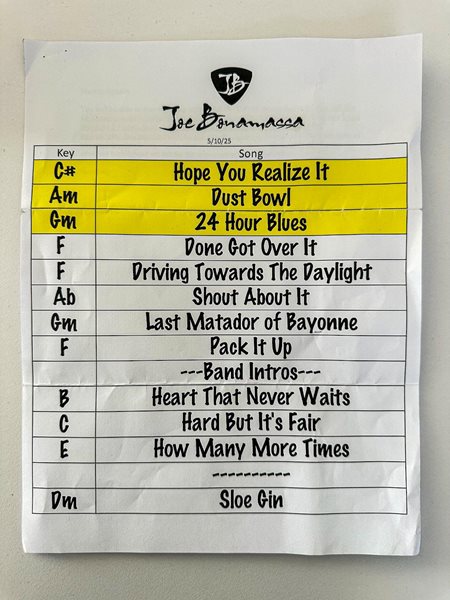 JB
Joe Bonamassa
5/10/25
Key Song
C# Hope You Realize It
Am Dust Bowl
Gm 24 Hour Blues
F Done Got Over It
F Driving Towards The Daylight
Ab Shout About It
Gm Last Matador of Bayonne
F Pack It Up
---Band Intros---
B Heart That Never Waits
C Hard But It's Fair
E How Many More Times
----------
Dm Sloe Gin